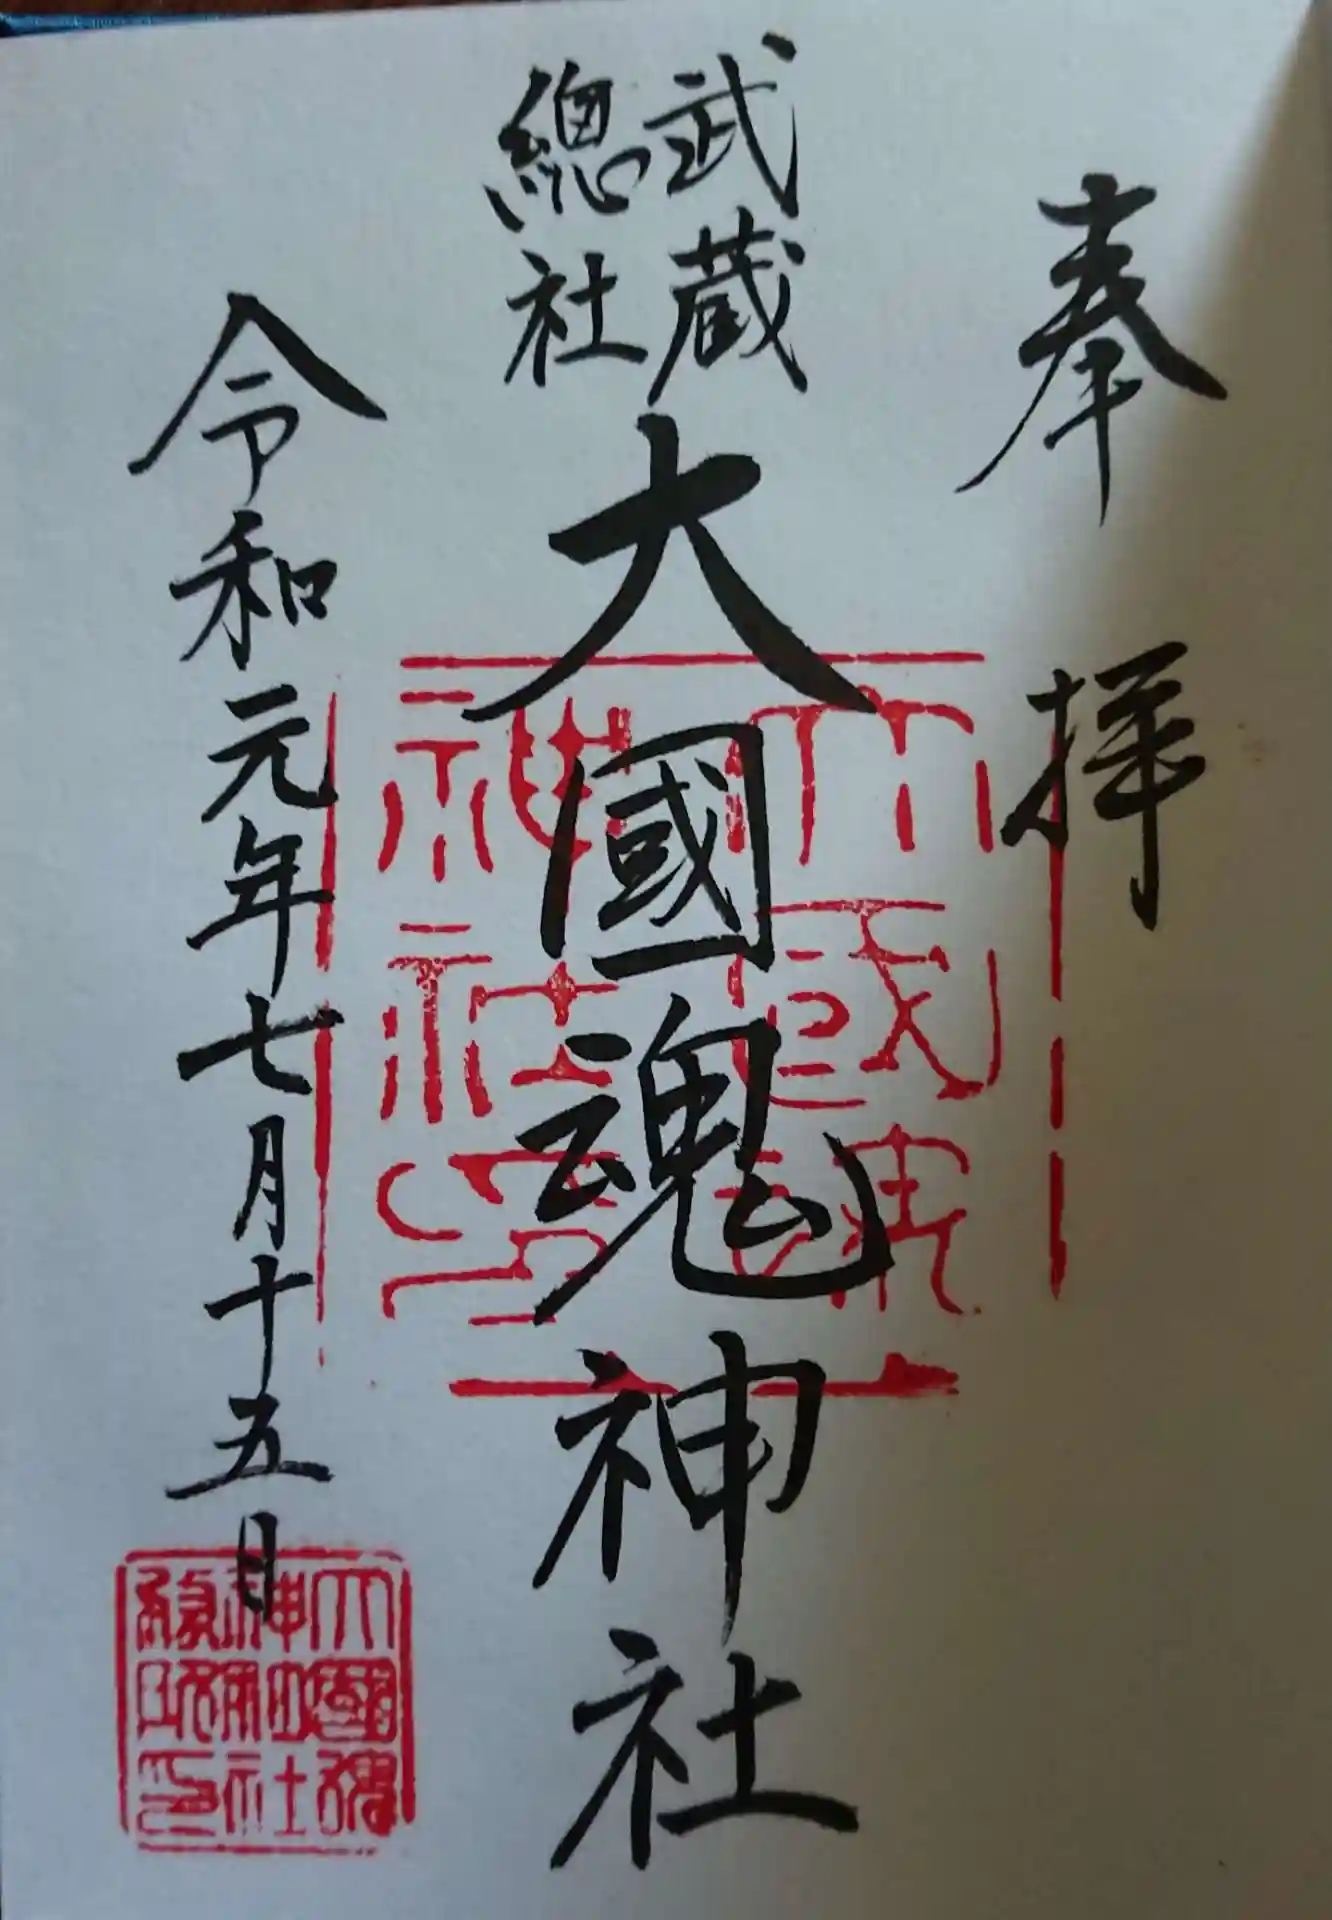 奉拝
武蔵
總社
大國魂神社
令和元年七月十五日
大國魂
神社印
大國魂
神社